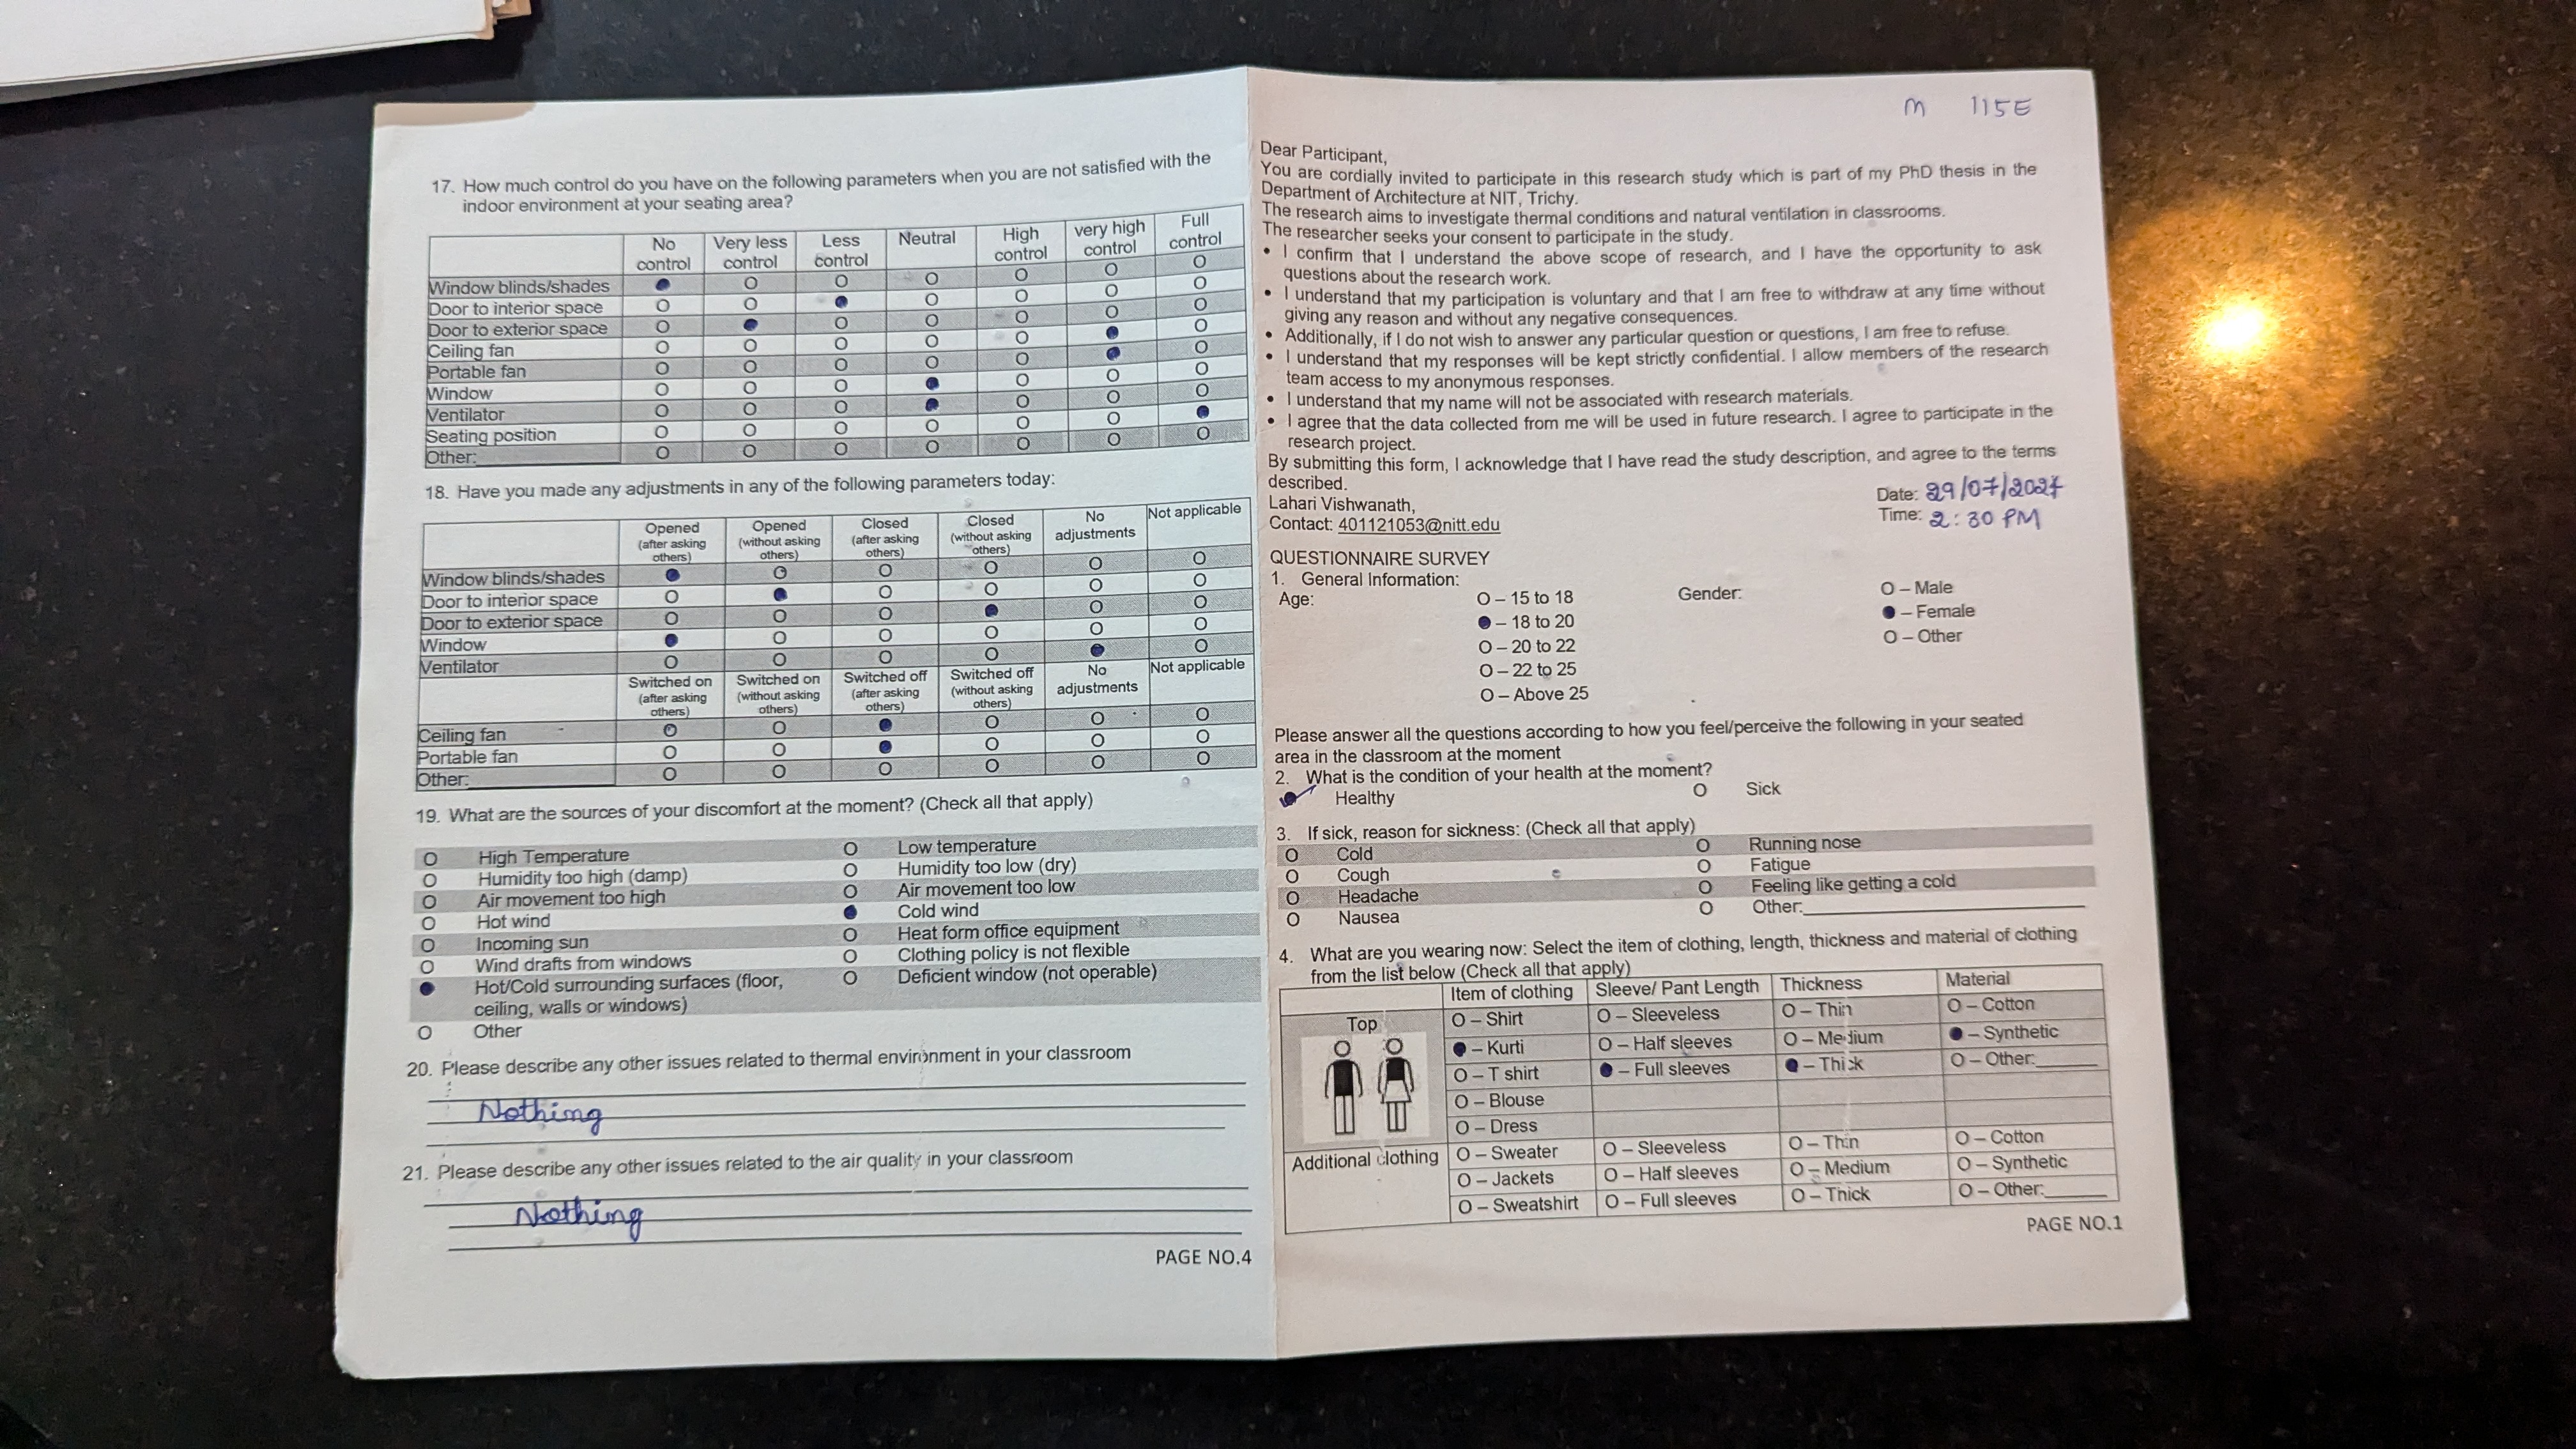 17. How much control do you have on the following parameters when you are not satisfied with the
indoor environment at your seating area?
No control Very less control Less control Neutral High control very high control Full control
Window blinds/shades ● O O O O O O
Door to interior space O O ● O O O O
Door to exterior space O ● O O O O O
Ceiling fan O O O O O ● O
Portable fan O O O O O ● O
Window O O O ● O O O
Ventilator O O O ● O O O
Seating position O O O O O O ●
Other: O O O O O O O
18. Have you made any adjustments in any of the following parameters today:
Opened (after asking others) Opened (without asking others) Closed (after asking others) Closed (without asking others) No adjustments Not applicable
Window blinds/shades ● O O O O O
Door to interior space O ● O O O O
Door to exterior space O O O ● O O
Window ● O O O O O
Ventilator O O O O ● O
Switched on (after asking others) Switched on (without asking others) Switched off (after asking others) Switched off (without asking others) No adjustments Not applicable
Ceiling fan O O ● O O O
Portable fan O O ● O O O
Other: O O O O O O
19. What are the sources of your discomfort at the moment? (Check all that apply)
O High Temperature O Low temperature
O Humidity too high (damp) O Humidity too low (dry)
O Air movement too high O Air movement too low
O Hot wind ● Cold wind
O Incoming sun O Heat form office equipment
O Wind drafts from windows O Clothing policy is not flexible
● Hot/Cold surrounding surfaces (floor, O Deficient window (not operable)
ceiling, walls or windows)
O Other
20. Please describe any other issues related to thermal environment in your classroom
Nothing
21. Please describe any other issues related to the air quality in your classroom
Nothing
PAGE NO.4
M 115E
Dear Participant,
You are cordially invited to participate in this research study which is part of my PhD thesis in the
Department of Architecture at NIT, Trichy.
The research aims to investigate thermal conditions and natural ventilation in classrooms.
The researcher seeks your consent to participate in the study.
• I confirm that I understand the above scope of research, and I have the opportunity to ask
questions about the research work.
• I understand that my participation is voluntary and that I am free to withdraw at any time without
giving any reason and without any negative consequences.
• Additionally, if I do not wish to answer any particular question or questions, I am free to refuse.
• I understand that my responses will be kept strictly confidential. I allow members of the research
team access to my anonymous responses.
• I understand that my name will not be associated with research materials.
• I agree that the data collected from me will be used in future research. I agree to participate in the
research project.
By submitting this form, I acknowledge that I have read the study description, and agree to the terms
described.
Lahari Vishwanath,
Contact: 401121053@nitt.edu
Date: 29/07/2024
Time: 2:30 PM
QUESTIONNAIRE SURVEY
1. General Information:
Age: O – 15 to 18 Gender: O – Male
● – 18 to 20 ● – Female
O – 20 to 22 O – Other
O – 22 to 25
O – Above 25
Please answer all the questions according to how you feel/perceive the following in your seated
area in the classroom at the moment
2. What is the condition of your health at the moment?
● Healthy O Sick
3. If sick, reason for sickness: (Check all that apply)
O Cold O Running nose
O Cough O Fatigue
O Headache O Feeling like getting a cold
O Nausea O Other:
4. What are you wearing now: Select the item of clothing, length, thickness and material of clothing
from the list below (Check all that apply)
Item of clothing Sleeve/ Pant Length Thickness Material
Top O – Shirt O – Sleeveless O – Thin O – Cotton
● – Kurti O – Half sleeves O – Medium ● – Synthetic
O – T shirt ● – Full sleeves ● – Thick O – Other:
O – Blouse
O – Dress
Additional clothing O – Sweater O – Sleeveless O – Thin O – Cotton
O – Jackets O – Half sleeves O – Medium O – Synthetic
O – Sweatshirt O – Full sleeves O – Thick O – Other:
PAGE NO.1